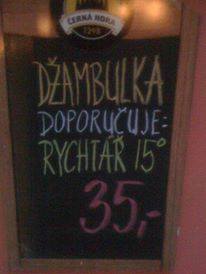 ČERNÁ HORA
1298
DŽAMBULKA
DOPORUČUJE:
RYCHTÁŘ 15°
35,-